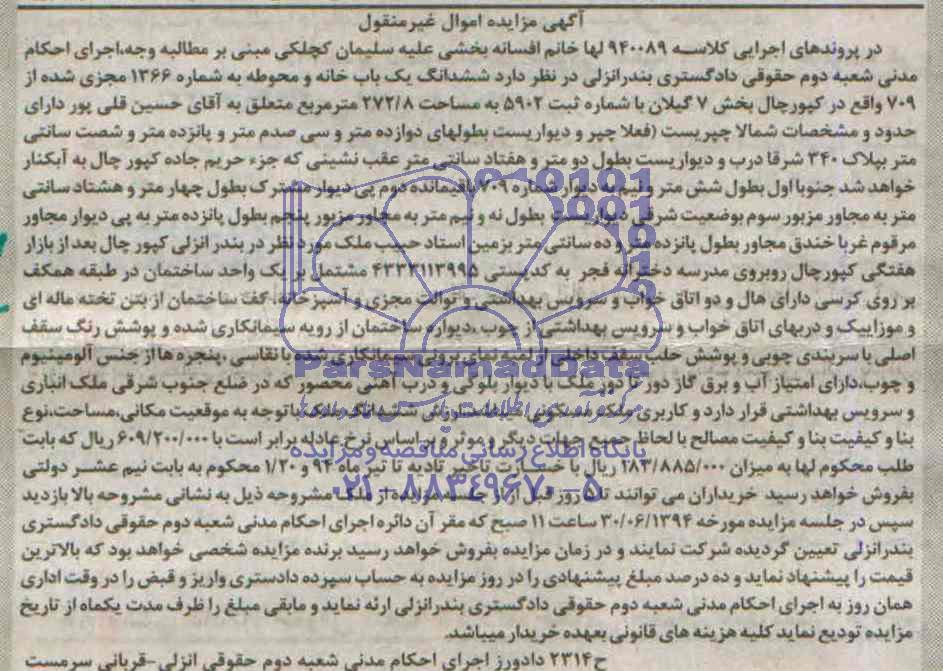 آگهی مزایده اموال غیرمنقول
در پروندهای اجرایی کلاسه ۹۴۰۰۸۹ لها خانم افسانه بخشی علیه سلیمان کچلکی مبنی بر مطالبه وجه،اجرای احکام
مدنی شعبه دوم حقوقی دادگستری بندرانزلی در نظر دارد ششدانگ یک باب خانه و محوطه به شماره ۱۳۶۶ مجزی شده از
۷۰۹ واقع در کپورچال بخش ۷ گیلان با شماره ثبت ۵۹۰۲ به مساحت ۲۷۲/۸ مترمربع متعلق به آقای حسین قلی پور دارای
حدود و مشخصات شمالا چپریست (فعلا چپر و دیواریست بطولهای دوازده متر و سی صدم متر و پانزده متر و شصت سانتی
متر بپلاک ۳۴۰ شرقا درب و دیواریست بطول دو متر و هفتاد سانتی متر عقب نشینی که جزء حریم جاده کپور چال به آبکنار
خواهد شد جنوبا اول بطول شش متر و نیم به دیوار شماره ۷۰۹ باقیمانده دوم پی دیوار مشترک بطول چهار متر و هشتاد سانتی
متر به مجاور مزبور سوم بوضعیت شرقی دیواریست بطول نه و نیم متر به مجاور مزبور پنجم بطول پانزده متر به پی دیوار مجاور
مرقوم غربا خندق مجاور بطول پانزده متر و ده سانتی متر بزمین استاد حبیب ملک مورد نظر در بندر انزلی کپور چال بعد از بازار
هفتگی کپورچال روبروی مدرسه دخترانه فجر به کدپستی ۴۳۳۳۱۱۳۹۹۵ مشتمل بر یک واحد ساختمان در طبقه همکف
بر روی کرسی دارای هال و دو اتاق خواب و سرویس بهداشتی و توالت مجزی و آشپزخانه، کف ساختمان از بتن تخته ماله ای
و موزاییک و دربهای اتاق خواب و سرویس بهداشتی از چوب ،دیواره ساختمان از رویه سیمانکاری شده و پوشش رنگ سقف
اصلی با سربندی چوبی و پوشش حلب سقف داخلی از لمبه نمای برونی سیمانکاری شده با نقاسی ،پنجره ها از جنس آلومینیوم
و چوب،دارای امتیاز آب و برق گاز دور تا دور ملک با دیوار بلوکی و درب آهنی محصور که در ضلع جنوب شرقی ملک انباری
و سرویس بهداشتی قرار دارد و کاربری ملک مسکونی میباشد ارزش ششدانگ ملک باتوجه به موقعیت مکانی،مساحت،نوع
بنا و کیفیت بنا و کیفیت مصالح با لحاظ جمیع جهات دیگر و موثر و براساس نرخ عادله برابر است با ۶۰۹/۲۰۰/۰۰۰ ریال که بابت
طلب محکوم لها به میزان ۲۸۳/۸۸۵/۰۰۰ ریال با خسارت تاخیر تادیه تا تیر ماه ۹۴ و ۱/۲۰ محکوم به بابت نیم عشر دولتی
بفروش خواهد رسید خریداران می توانند تا ۵ روز قبل از جلسه مزایده از ملک مشروحه ذیل به نشانی مشروحه بالا بازدید
سپس در جلسه مزایده مورخه ۳۰/۰۶/۱۳۹۴ ساعت ۱۱ صبح که مقر آن دائره اجرای احکام مدنی شعبه دوم حقوقی دادگستری
بندرانزلی تعیین گردیده شرکت نمایند و در زمان مزایده بفروش خواهد رسید برنده مزایده شخصی خواهد بود که بالاترین
قیمت را پیشنهاد نماید و ده درصد مبلغ پیشنهادی را در روز مزایده به حساب سپرده دادستری واریز و قبض را در وقت اداری
همان روز به اجرای احکام مدنی شعبه دوم حقوقی دادگستری بندرانزلی ارئه نماید و مابقی مبلغ را ظرف مدت یکماه از تاریخ
مزایده تودیع نماید کلیه هزینه های قانونی بعهده خریدار میباشد.
ح۲۳۱۴ دادورز اجرای احکام مدنی شعبه دوم حقوقی انزلی-قربانی سرمست
ParsNamadData
پایگاه اطلاع رسانی مناقصه و مزایده
۰۲۱-۸۸۳۴۹۶۷۰-۵